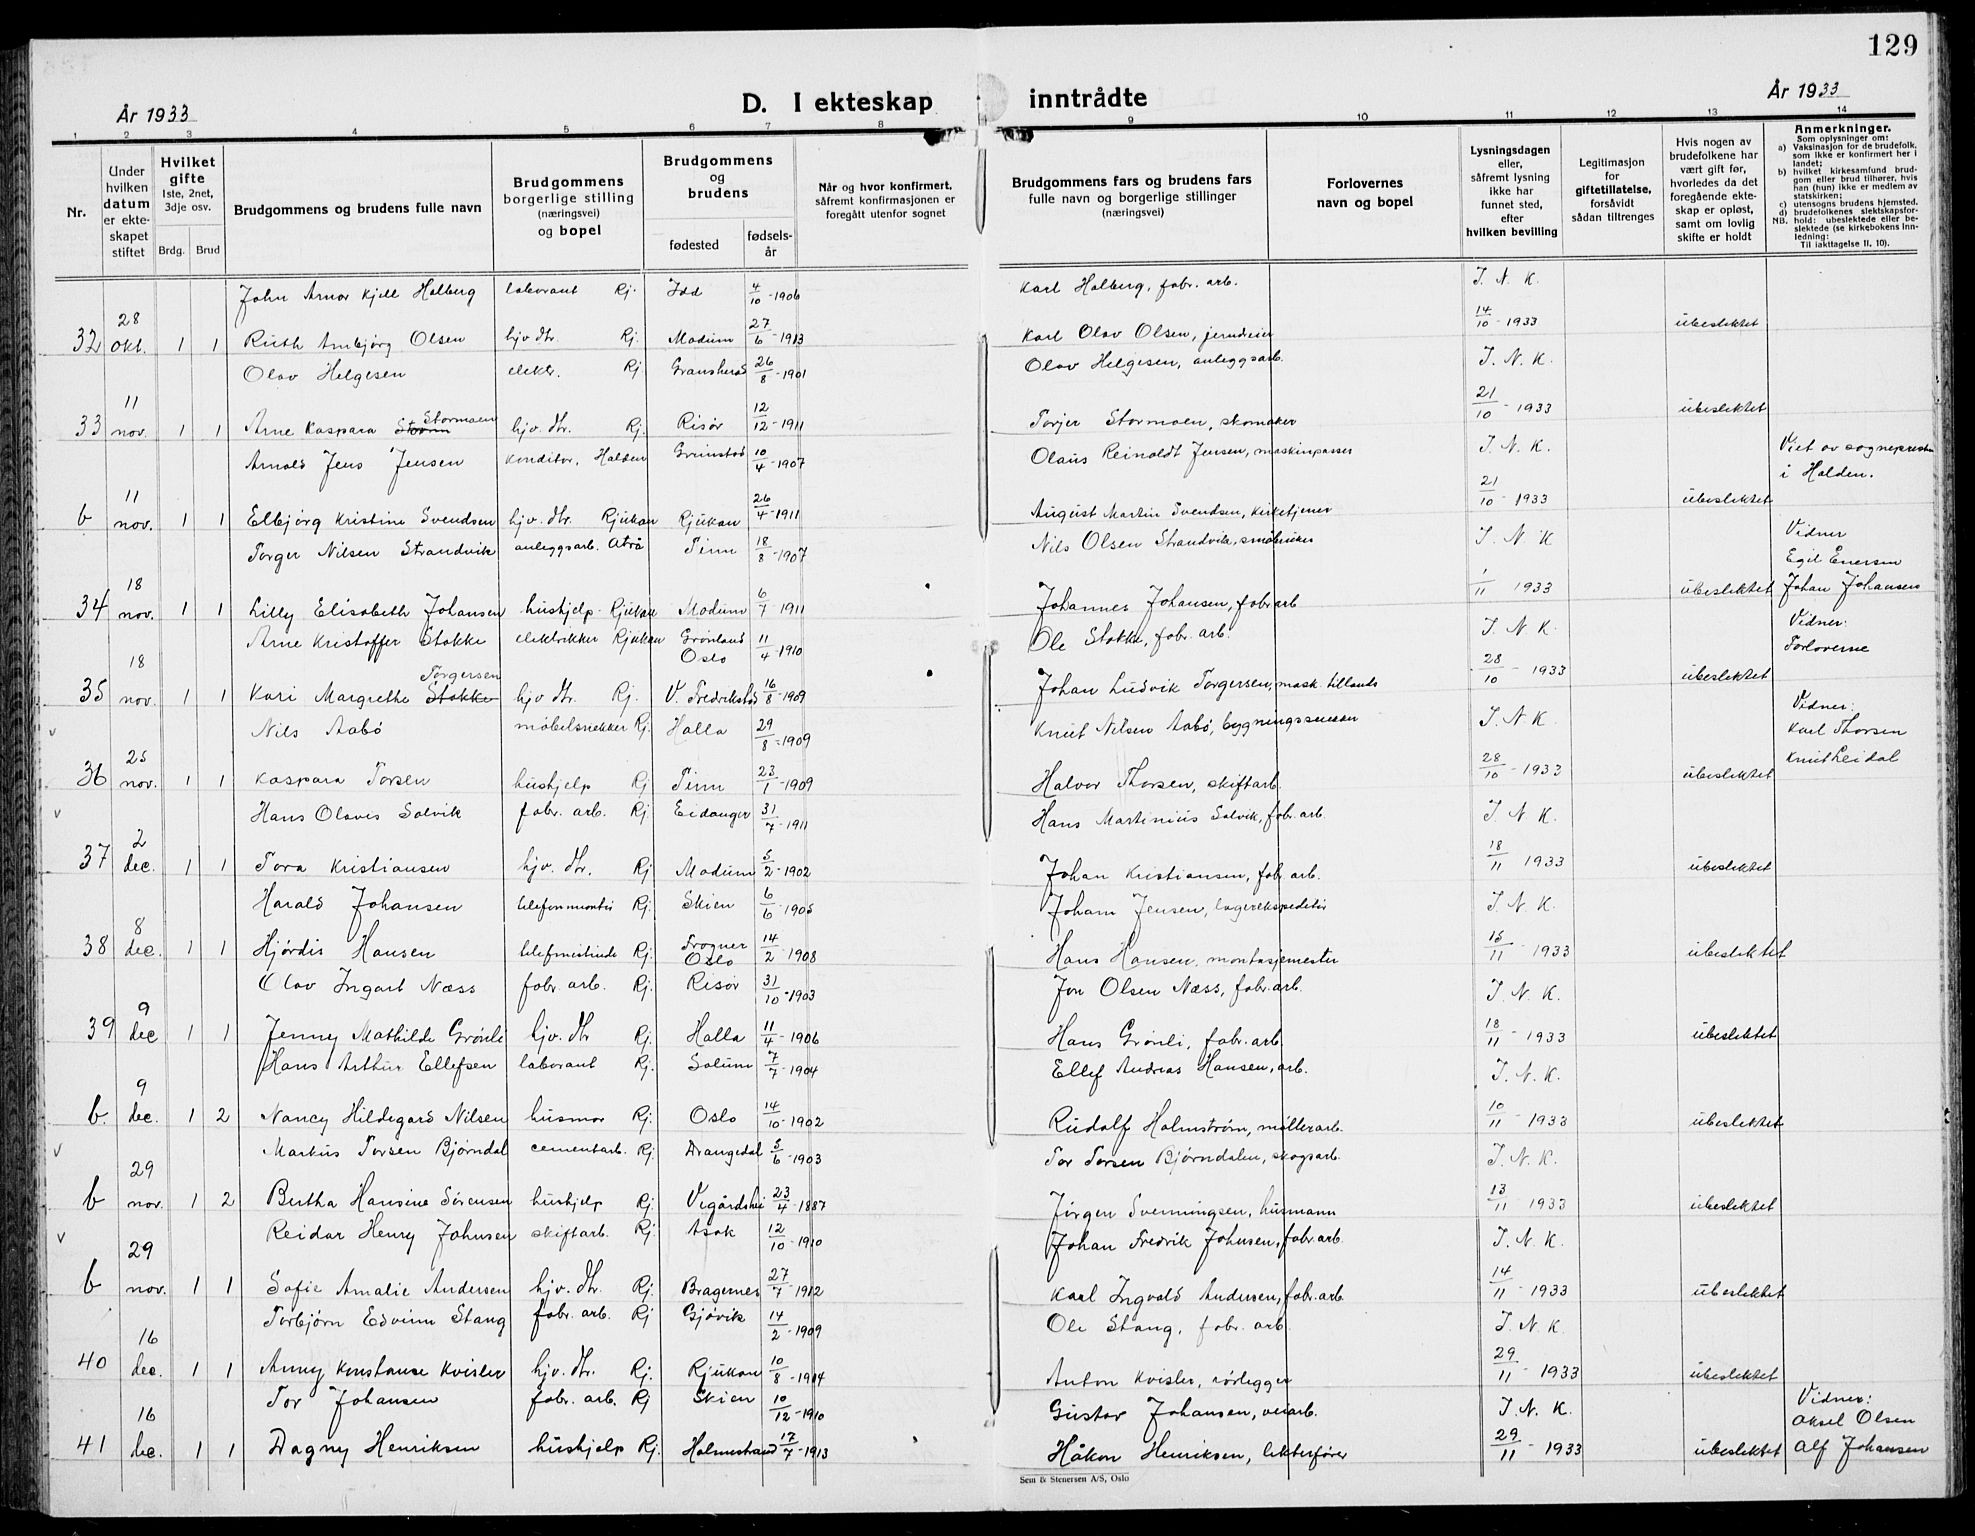 129
År 1933 D. I ekteskap inntrådte År 1933
1 2 3 4 5 6 7 8 9 10 11 12 13 14
Nr.
Under hvilken datum er ekteskapet stiftet
Hvilket gifte
1ste, 2net, 3dje osv.
Brdg. Brud
Brudgommens og brudens fulle navn
Brudgommens borgerlige stilling (næringsvei) og bopel
Brudgommens og brudens
fødested fødselsår
Når og hvor konfirmert, såfremt konfirmasjonen er foregått utenfor sognet
Brudgommens fars og brudens fars fulle navn og borgerlige stillinger (næringsvei)
Forlovernes navn og bopel
Lysningsdagen eller, såfremt lysning ikke har funnet sted, efter hvilken bevilling
Legitimasjon for giftetillatelse, forsåvidt sådan tiltrenges
Hvis nogen av brudefolkene har vært gift før, hvorledes da det foregående ekteskap er opløst, samt om lovlig skifte er holdt
Anmerkninger.
Som oplysninger om:
a) Vaksinasjon for de brudefolk, som ikke er konfirmert her i landet;
b) hvilket kirkesamfund brudgom eller brud tilhører, hvis han (hun) ikke er medlem av statskirken;
c) utensogns brudens hjemsted.
d) brudefolkenes slektskapsforhold: ubeslektede eller beslektede (se kirkebokens innledning:
NB. Til iakttagelse II, 10).
John Arnor Kjell Holberg laborant Rj. Idd 4/10-1906 Karl Holberg, fabr. arb. I. N. K.
32 28 okt. 1 1 Ruth Ambjørg Olsen hjv. dtr. Rj. Modum 27/6-1913 Karl Olav Olsen, jerndreier 14/10-1933 ubeslektet
Olav Helgesen elektr. Rj. Gransherad 26/8-1901 Olav Helgesen, anleggsarb. I. N. K.
33 11 nov. 1 1 Arne Kaspara Storm Stormoen hjv. dtr. Rj. Risør 12/12-1911 Torjer Stormoen, skomaker 21/10-1933 ubeslektet
Arnold Jens Jensen konditor, Halden Grimstad 10/4-1907 Olaus Reinoldt Jensen, maskinpasser I. N. K. Viet av sognepresten i Halden.
b 11 nov. 1 1 Elbjørg Kristine Svendsen hjv. dtr. Rjukan Rjukan 26/4-1911 August Martin Svendsen, kirketjener 21/10-1933 ubeslektet
Torger Nilsen Strandvik anleggsarb. Atrå Tinn 18/8-1907 Nils Olsen Strandvik, småbruker I. N. K Vidner Egil Enersen
34 18 nov. 1 1 Lilly Elisabeth Johansen hushjelp Rjukan Modum 6/7 1911 Johannes Johansen, fabr. arb 1/11 1933 ubeslektet Johan Johansen
Arne Kristoffer Stokke elektrikker Rjukan Grønland Oslo 11/4-1910 Ole Stokke, fabr. arb. I. N. K. Vidner: Forloverne
35 18 nov. 1 1 Kari Margrethe Stokke Torgersen hjv. dtr. Rj. V. Fredrikstad 16/8-1909 Johan Ludvik Torgersen, mask. 28/10-1933 ubeslektet
v Nils Aabø møbelsnekker Rj. Halla 29/8-1909 Knut Nilsen Aabø, bygningssnekker I. N. K. Vidner: Karl Thorsen Knut Leidal
36 25 nov. 1 1 Kaspara Torsen hushjelp Rj Tinn 23/1-1909 Halvor Thorsen, skiftarb. 28/10-1933 ubeslektet
v Hans Olavis Solvik fabr. arb. Rj Eidanger 31/7-1911 Hans Martinius Solvik, fabr. arb. I. N. K.
37 2 dec. 1 1 Tora Kristiansen hjv. dtr. Rj Modum 5/2-1902 Johan Kristiansen, fabr. arb. 18/11 1933 ubeslektet
Harald Johansen telefonmontør Rj. Skien 6/6-1905 Johan Jensen, lagerekspeditør I. N. K.
38 8 dec. 1 1 Hjørdis Hansen Rj. Frogner Oslo 14/2-1908 Hans Hansen, montasjemester 15/11-1933 ubeslektet
Olav Ingart Næss fabr. arb. Rj. Risør 31/10-1903 Jon Olsen Næss, fabr. arb. I. N. K.
39 9 dec 1 1 Jenny Mathilde Grønli hjv. dtr Rj. Halla 11/4-1906 Hans Grønli, fabr. arb. 18/11-1933 ubeslektet
Hans Arthur Ellefsen laborant Rj. Solum 7/7-1904 Ellef Andreas Hansen, arb. I. N. K.
b. 9 dec. 1 2 Nancy Hildegard Nilsen husmor Rj. Oslo 14/10-1902 Rudolf Holmstrøm, møllerarb. 10/11-1933 ubeslektet
v Markus Torsen Bjørndal cementarb. Rj. Drangedal 5/6-1903 Tor Torsen Bjørndalen, skogsarb. I. N. K.
b 29 nov. 1 2 Bertha Hansine Sørensen hushjelp Rj. Vegårdshei 23/4-1887 Jørgen Svenningsen, husmann 13/11 1933 ubeslektet
v Reidar Henry Johnsen skiftarb. Rj. Asak 12/10-1910 Johan Fredrik Johnsen, fabr. arb. I. N. K.
b 29 nov. 1 1 Sofie Amalie Andersen hjv. dtr. Rj. Bragernes 27/7-1912 Karl Ingvald Andersen, fabr. arb 14/11-1933 ubeslektet
Torbjørn Edvinn Stang fabr. arb. Rj Gjøvik 14/2-1909 Ole Stang, fabr. arb. I. N. K.
40 16 dec. 1 1 Anny Konstanse Kvisler hjv. dtr. Rj. Rjukan 10/8-1914 Anton Kvisler, rørlegger 29/11-1933 ubeslektet
Tor Johansen fabr. arb. Rj Skien 10/12-1910 Gustav Johansen, veiarb. I. N. K. Vidner: Aksel Olsen
41 16 dec. 1 1 Dagny Henriksen hushjelp Rj. Holmestrand 17/7-1913 Håkon Henriksen, lekterfører 29/11-1933 ubeslektet Alf Johansen
Sem & Stenersen A/S, Oslo